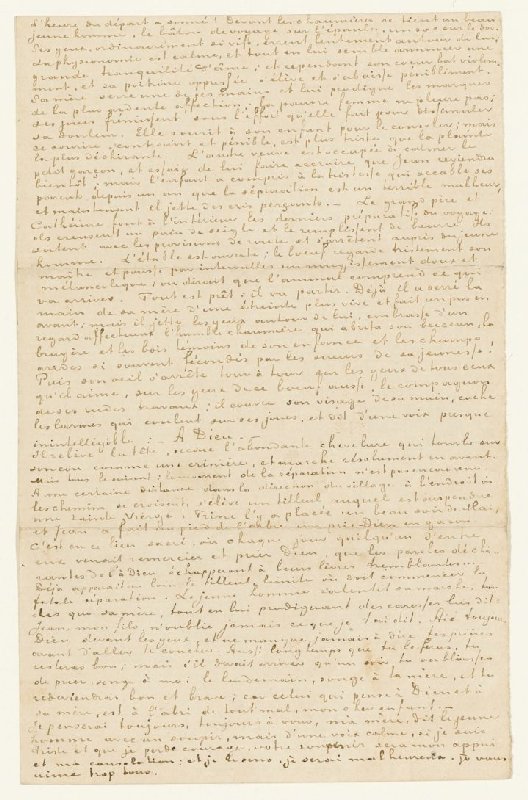 L'heure du départ a sonné! Devant les chaumières se tient un beau
jeune homme, le bâton de voyage sur l'épaule, un sac sur le dos.
Ses yeux, ordinairement si vifs, errent lentement autour de lui,
sa physionomie est calme, et tout en lui semble annoncer une
grande tranquilité d'âme, et cependant son cœur bat violem-
ment, et sa poitrine oppressée s'élève et s'abaisse péniblement.
Sa mère serre une de ses mains et lui prodigue les marques
de la plus ardente affection; la pauvre femme ne pleure pas;
ses joues frémissent sous l'effort qu'elle fait pour dissimuler
sa douleur. Elle sourit à son enfant pour le consoler; mais
ce sourire, contraint et pénible, est plus triste que la plainte
la plus déchirante. L'autre veuve est occupée à calmer le
petit garçon, et essaye de lui faire accroire que Jean reviendra
bientôt; mais l'enfant a compris à la tristesse qui accable ses
parents depuis un an que la séparation est un terrible malheur,
et maintenant il jette des cris perçants. — Le grand père et
Cathérine font à l'intérieur les derniers préparatifs du voyage,
ils creusent un pain de seigle et le remplissent de beurre. Ils
sortent avec les provisions de route et s'arrêtent auprès du jeune
homme. L'étable est ouverte; le bœuf regarde tristement son
maître et pousse par intervalles un mugissement doux et
mélancolique; on dirait que l'animal comprend ce qui
va arriver. Tout est prêt: il va partir. Déjà il a serré la
main de sa mère d'une étreinte plus vive et fait un pas en
avant; mais il jette les yeux autour de lui, embrasse d'un
regard affectueux l'humble chaumière qui abrita son berceau, la
bruyère et les bois témoins de son enfance et les champs
arides si souvent fécondés par les sueurs de sa jeunesse.
Puis son œil s'arrête tour à tour sur les yeux de tous ceux
qu'il aime, sur les yeux de ce bœuf aussi, le compagnon
de ses rudes travaux; il couvre son visage de sa main, cache
les larmes qui coulent sur ses joues, et dit d'une voix presque
inintelligible: — À Dieu.—
Il relève la tête, secoue l'abondante chevelure qui tombe sur
son cou comme une crinière, et marche résolument en avant.
Mais tous le suivent; le moment de la séparation n'est pas encore venu.
À une certaine distance dans la direction du village à l'endroit où
les chemins se croisent, s'élève un tilleul auquel est suspendue
une sainte Vierge. Trine l'y a placée un beau soir de Mai,
et Jean a fait au pied de l'arbre un prie-Dieu en gazon.
C'est en ce lieu sacré, où chaque jour quelqu'un d'entre
eux venait remercier et prier Dieu, que les paroles déchi-
rantes de l'à Dieu échapperont à leurs lèvres tremblantes.
Déjà apparaît au loin le tilleul, limite où doit commencer la
fatale séparation. Le jeune homme ralentit sa marche, tan-
dis que sa mère, tout en lui prodiguant des caresses lui dit:
Jean, mon fils, n'oublie jamais ce que je t'ai dit. Aie toujours
Dieu devant les yeux, et ne manque jamais à dire tes prières
avant d'aller te coucher. Aussi longtemps que tu le feras, tu
resteras bon; mais s'il devait arriver qu'un soir tu oubliasses
de prier, songe à moi le lendemain, songe à ta mère, et tu
redeviendras bon et brave; car celui qui pense à Dieu et à
sa mère, est à l'abri de tout mal, mon cher enfant. —
Je penserai toujours, toujours à vous, ma mère, dit le jeune
homme avec un soupir, mais d'une voix calme, si je suis
triste et que je perde courage, votre souvenir sera mon appui
et ma consolation: et je serai malheureux, je vous
aime trop tous.